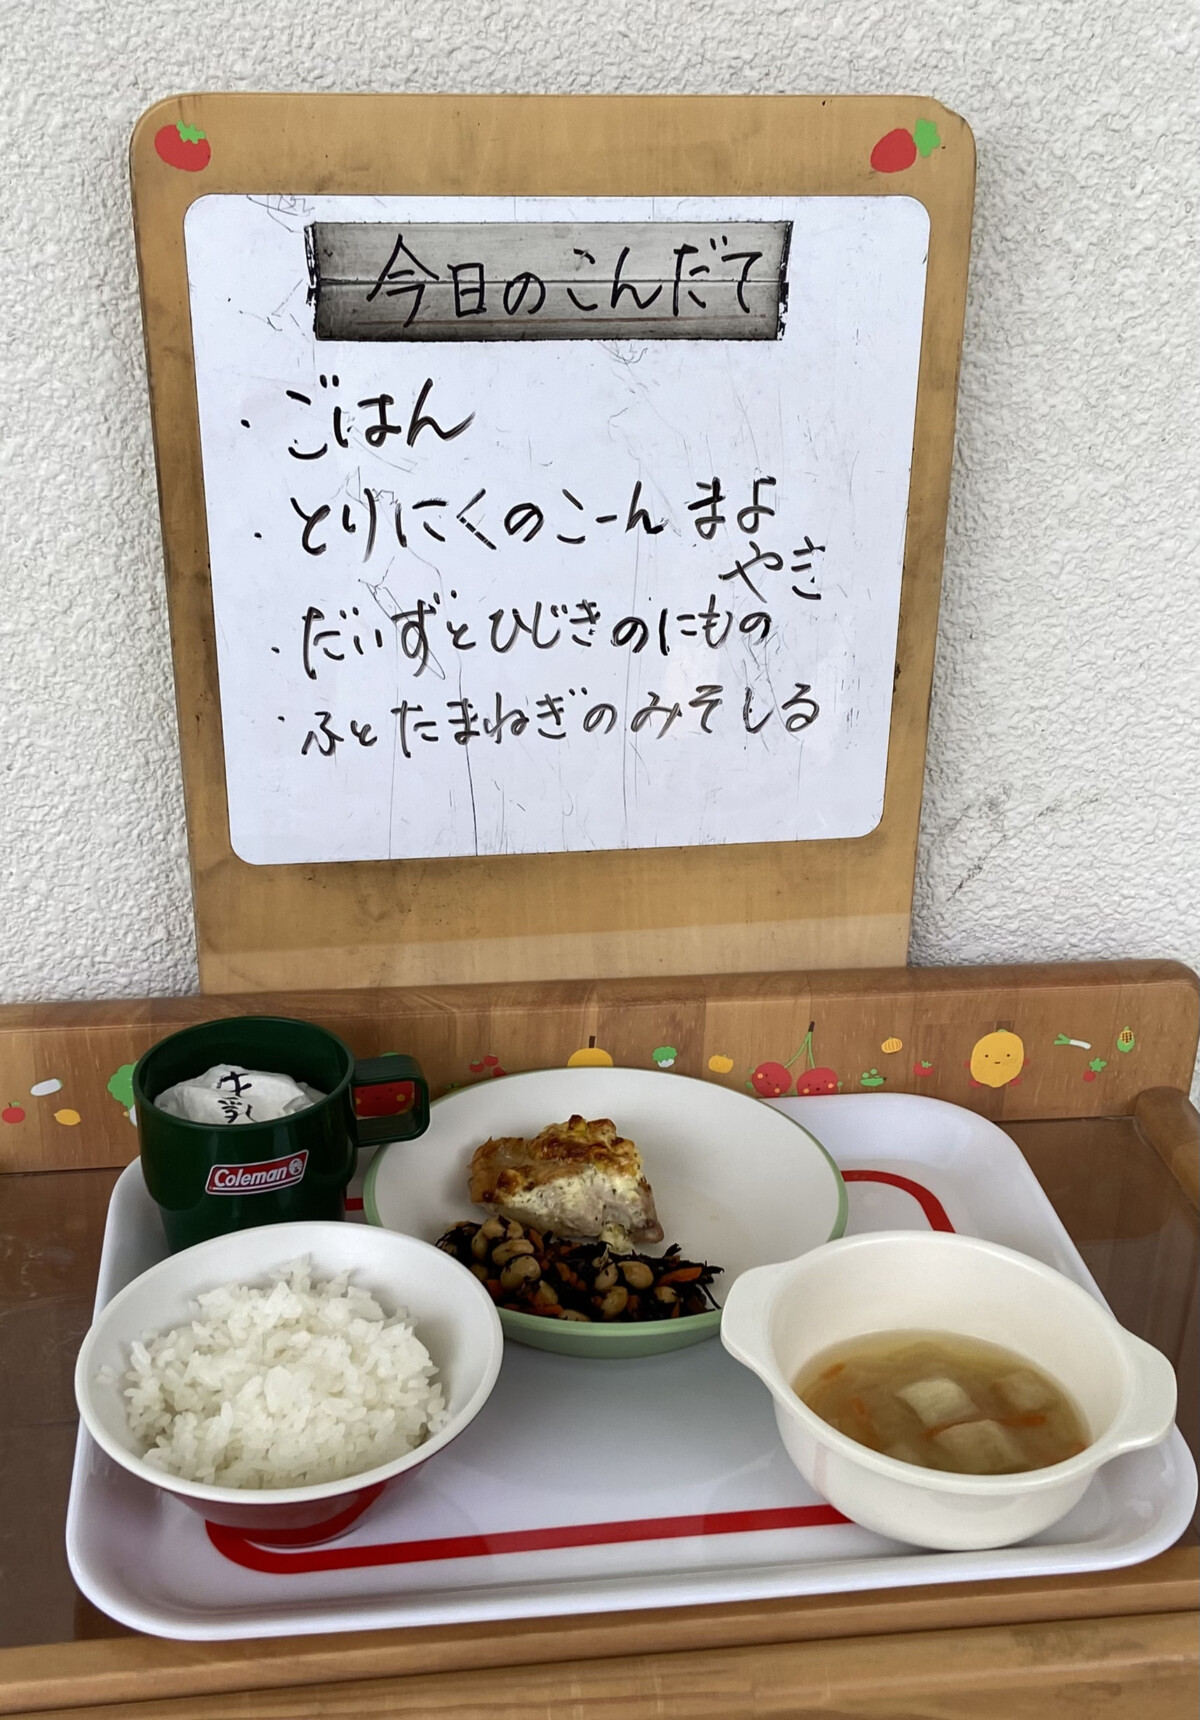 今日のこんだて
・ごはん
・とりにくのこーんまよ
やき
・だいずとひじきのにもの
・ふとたまねぎのみそしる
牛乳
Coleman